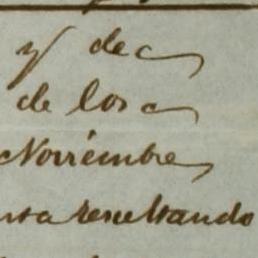 y de
de los
Noviembre
resultando